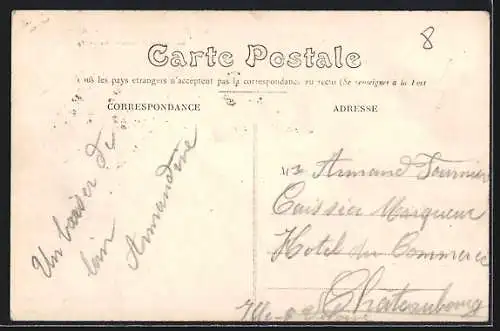 8
Carte Postale
Tous les pays étrangers n'acceptent pas la correspondance au recto (Se renseigner à la Poste
CORRESPONDANCE
ADRESSE
Un baiser de
loin
Amandine
Mr Armand Tournier
Caissier Marqueur
Hotel du Commerce
Chateaubourg
Ille-et-Vilaine